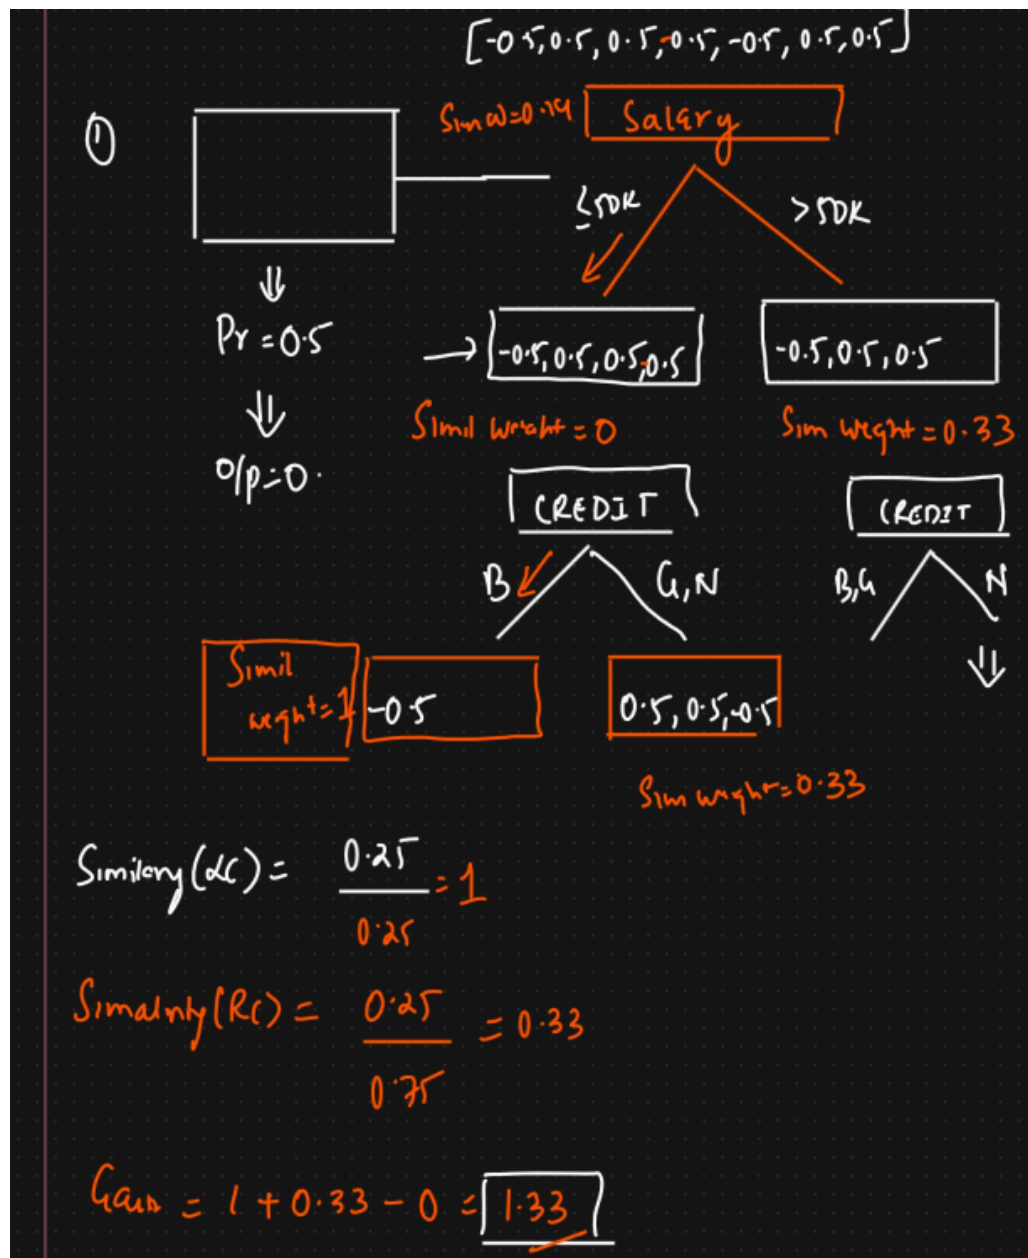 [-0.5, 0.5, 0.5, -0.5, -0.5, 0.5, 0.5]
① Sim ω=0.14 Salary
≤50K >50K
Pr = 0.5
-0.5, 0.5, 0.5, -0.5 -0.5, 0.5, 0.5
Simil weight = 0 Sim weght = 0.33
o/p=0.
CREDIT CREDIT
B G,N B,G N
Simil
weght=1 -0.5 0.5, 0.5, -0.5
Sim weight=0.33
0.25
Similary (LC) = = 1
0.25
0.25
(RC) = = 0.33
0.75
Gain = 1 + 0.33 - 0 = 1.33